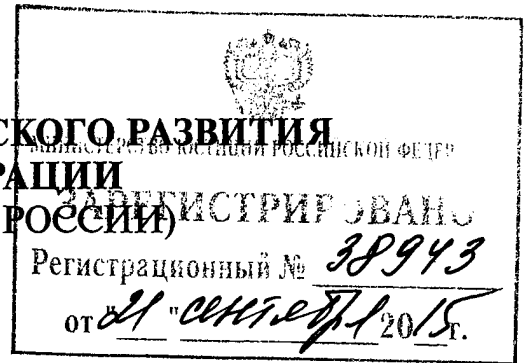 СКОГО РАЗВИТИЯ
МИНИСТЕРСТВО ЮСТИЦИИ РОССИЙСКОЙ ФЕДЕР
РАЦИИ
ЗАРЕГИСТРИРОВАНО
РОССИИ)
Регистрационный № 38943
от "21" сентября 2015г.